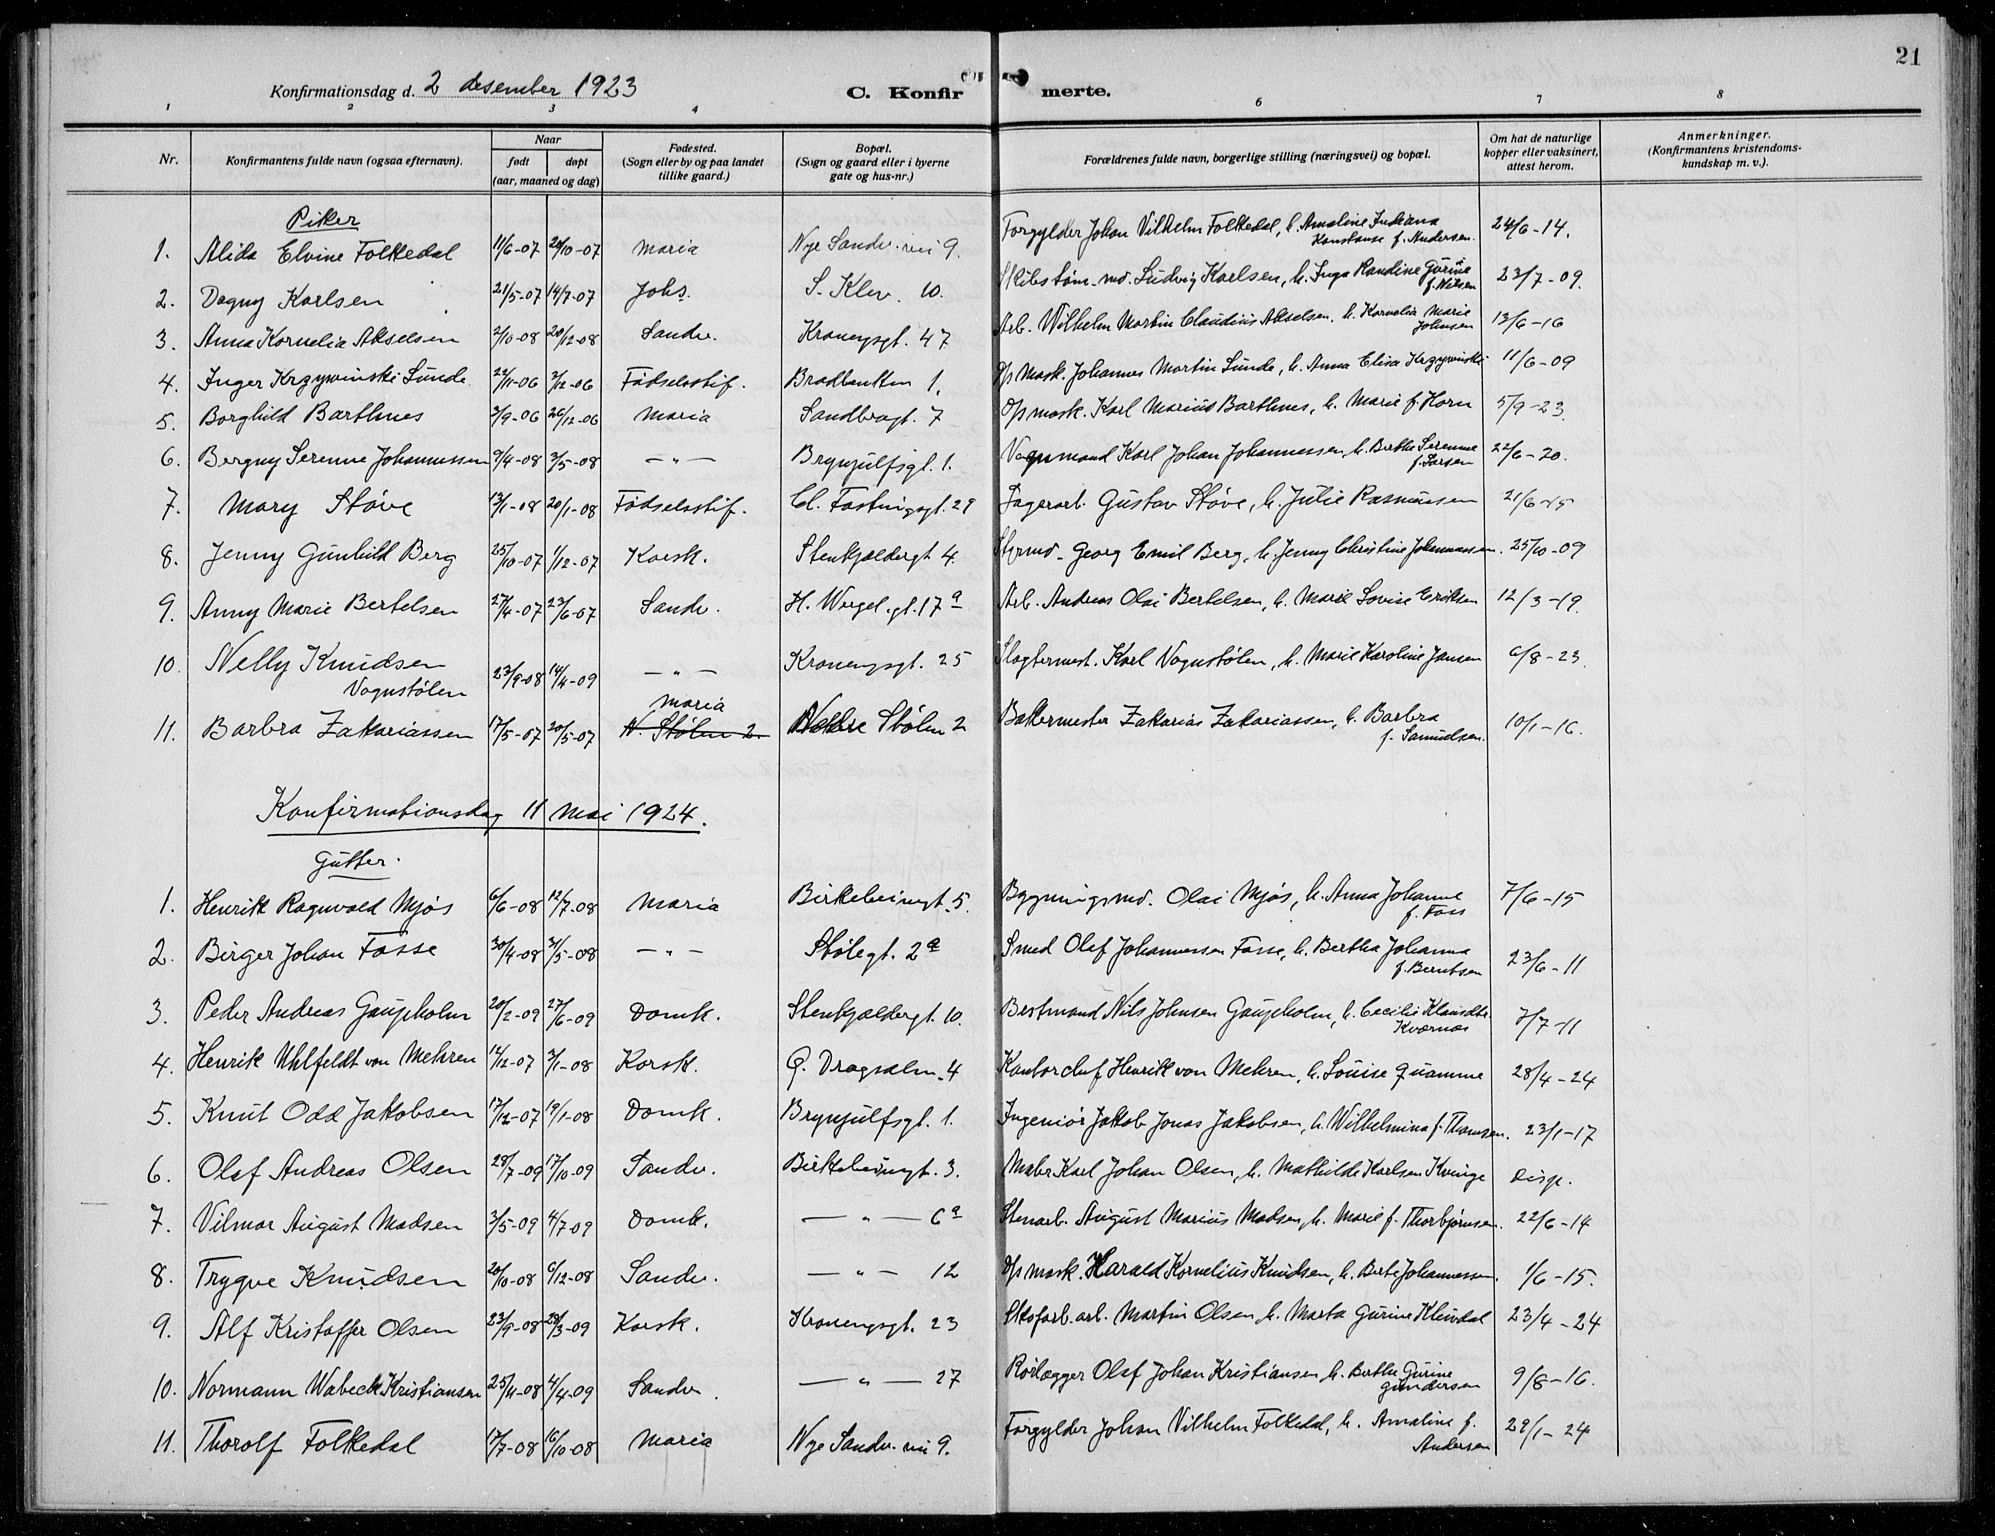 21
Konfirmationsdag d. 2 desember 1923 C. Konfirmerte.
1 2 3 4 6 7 8
Nr. Konfirmantens fulde navn (ogsaa efternavn). Naar født døpt (aar, maaned og dag) Fødested. (Sogn eller by og paa landet tillike gaard.) Bopæl. (Sogn og gaard eller i byerne gate og hus-nr.) Forældrenes fulde navn, borgerlige stilling (næringsvei) og bopæl. Om hat de naturlige kopper eller vaksinert, attest herom. Anmerkninger. (Konfirmantens kristendoms-kundskap m. v.).
Piker
1. Alida Elvine Folkedal 11/6-07 20/10-07 Maria Nye Sandv. vei 9. Forgylder Johan Vilhelm Folkedal, h. Amaline Indiana Konstanse f. Andersen. 24/6-14.
2. Dagny Karlsen 21/5-07 14/7-07 Johs. S. Klev. 10. Skibstøm.md. Ludvig Karlsen, h. Inga Randine Gurine f. Nilsen 23/7-09.
3. Anna Kornelia Akselsen 2/10-08 20/12-08 Sandv. Kronengsgt. 47 Arb. Wilhelm Martin Claudius Akselsen, h. Kornelia Marie Johnsen 13/6-16
4. Inger Krzywinski Sunde 22/11-06 3/12-06 Fødselsstif. Bradbenken 1. Op mask. Johannes Martin Sunde, h. Anna Elisa Krzywinski 11/6-09
5. Borghild Barthnes 3/9-06 26/12-06 Maria Sandbrogt. 7 Op mask. Karl Marius Barthnes, h. Marie f. Horn 5/9-23.
6. Bergny Serenne Johannessen 9/4-08 3/5-08 — " — Brynjulfsgt. 1. Vognmand Karl Johan Johannessen, h. Berthe Serenne f. Larsen 22/6-20.
7. Mary Støve 13/1-08 20/1-08 Fødselsstif. Cl. Fastingsgt. 29 Lagerarb. Gustav Støve, h. Julie Rasmussen 21/6-15
8. Jenny Gunhild Berg 25/10-07 1/12-07 Korsk. Stenkjeldergt 4. Styrmd. Georg Emil Berg, h. Jenny Christine Johannessen. 25/10-09
9. Anny Marie Bertelsen 27/4-07 23/6-07 Sandv. H. Wergel.gt. 17 a Arb. Andreas Olai Bertelsen, h. Marie Lovise Eriksen 12/3-19.
10. Nelly Knudsen Vognstølen 23/9-08 14/4-09 — " — Kronengsgt. 25 Slagtermest. Karl Vognstølen, h. Marie Karoline Jansen 6/8-23.
11. Barbra Zakariassen 17/5-07 20/5-07 Maria N. Stølen 2. Nedre Stølen 2 Bakermester Zakarias Zakariassen, h. Barbra f. Samuelsen. 10/1-16.
Konfirmationsdag 11 mai 1924.
Gutter.
1. Henrik Ragnvald Mjøs 6/6-08 12/7-08 Maria Birkebeinergt. 5. Bygningsmd. Olai Mjøs, h. Anna Johanne f. Foss 7/6-15
2. Birger Johan Fosse 30/4-08 31/5-08 — " — Stølegt. 2 a Smed Olaf Johannessen Fosse, h. Bertha Johanna f. Berntsen 23/6-11
3. Peder Andreas Gaupholm 20/2-09 27/6-09 Domk. Stenkjeldergt. 10. Bestmand Nils Johnsen Gaupholm, h. Cecilie Klausdtr. Kværnæs 7/7-11
4. Henrik Uhlfeldt von Mehren 12/12-07 3/1-08 Korsk. Q. Dragsalm. 4 Kontorchef Henrik von Mehren, h. Louise Quamme 28/4-24
5. Knut Odd Jakobsen 17/12-07 19/1-08 Domk. Brynjulfsgt. 1. Ingeniør Jakob Jonas Jakobsen, h. Wilhelmina f. Thomsen. 23/1-17
6. Olaf Andreas Olsen 28/7-09 17/10-09 Sandv. Birkebeinergt. 3. Maler Karl Johan Olsen, h. Mathilde Karlsen Kvinge Disp.
7. Vilmar August Madsen 3/5-09 4/7-09 Domk. — " — 6 a Stenarb. August Marius Madsen, h. Marie f. Thorbjørnsen. 22/6-14
8. Trygve Knudsen 20/10-08 6/12-08 Sandv. — " — 12 Op mask. Harald Kornelius Knudsen, h. Berte Johannessen. 1/6-15.
9. Alf Kristoffer Olsen 23/9-08 28/3-09 Korsk. Kronengsgt. 23 Skofarb.arb. Martin Olsen h. Marta Gurine Kleivdal 23/4-24
10. Normann Wabeck Kristiansen 25/4-08 4/4-09 Sandv. — " — 27 Rørlægger Olaf Johan Kristiansen, h. Berthe Gurine Gundersen 9/8-16.
11. Thorolf Folkedal 17/7-08 16/10-08 Maria Nye Sandv. vei 9. Forgylder Johan Vilhelm Folkedal, h. Amaline f. Andersen 29/1-24